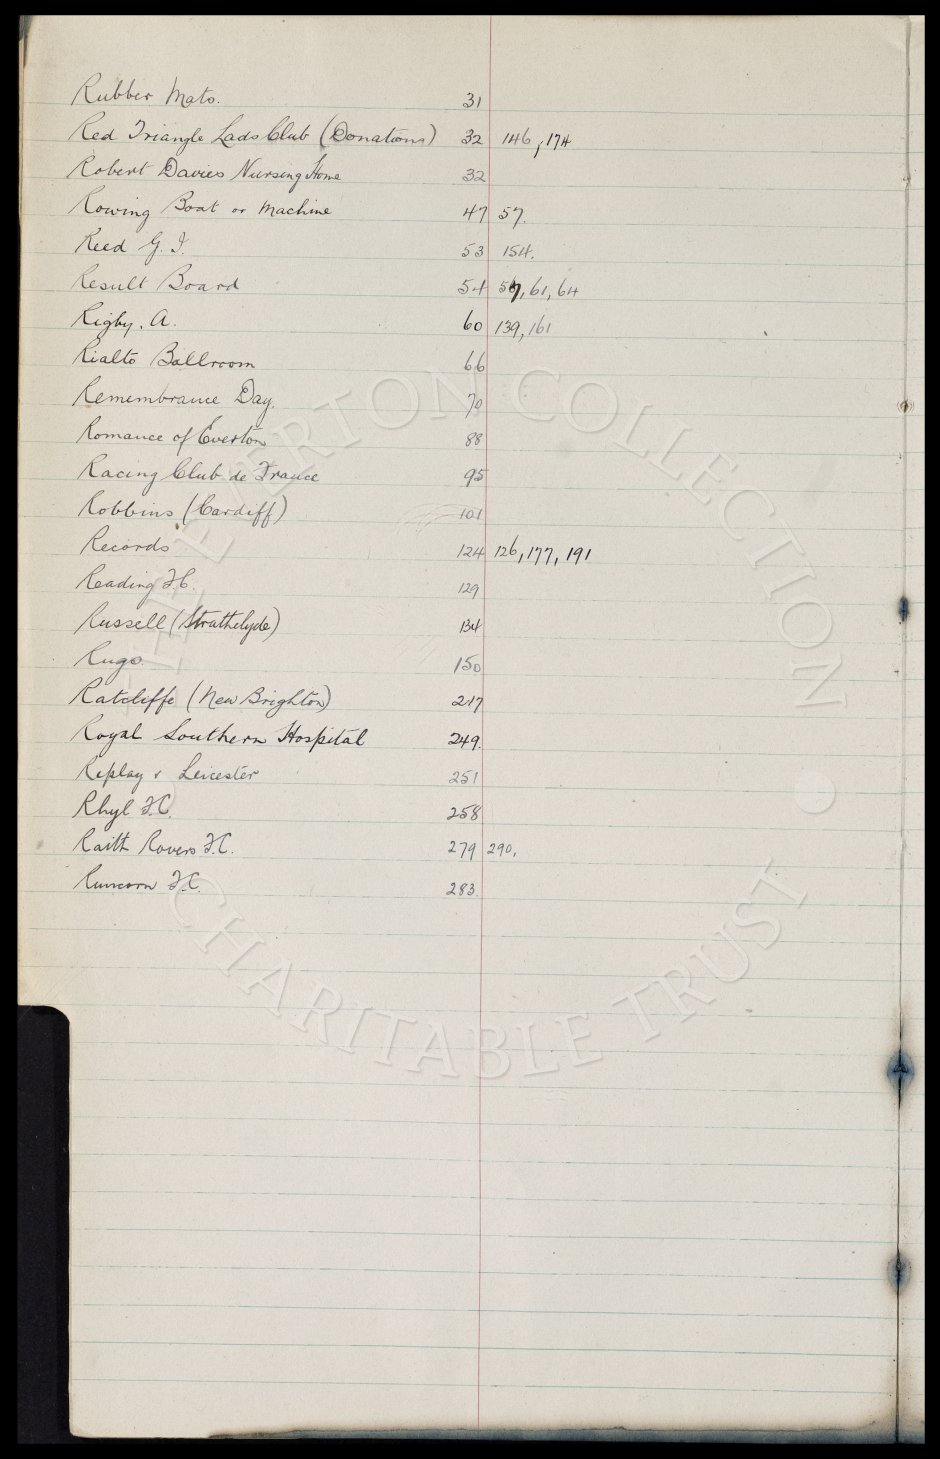 Rubber Mats. 31
Red Triangle Lads Club (Donations) 32 146, 174
Robert Davies Nursing Home 32
Rowing Boat or Machine 47 57.
Reed G. I. 53 154.
Result Board 54 57, 61, 64
Rigby. A. 60 139, 161
Rialto Ballroom 66
Remembrance Day. 70
Romance of Everton 88
Racing Club de France 95
Robbins (Cardiff) 101
Records 124 126, 177, 191
Reading F.C. 129
Russell (Strathclyde) 134
Rugs. 150
Ratcliffe (New Brighton) 217
Royal Southern Hospital 249.
Replay v Leicester 251
Rhyl F.C. 258
Raith Rovers F.C. 279 290,
Runcorn F.C. 283.
THE EVERTON COLLECTION
CHARITABLE TRUST